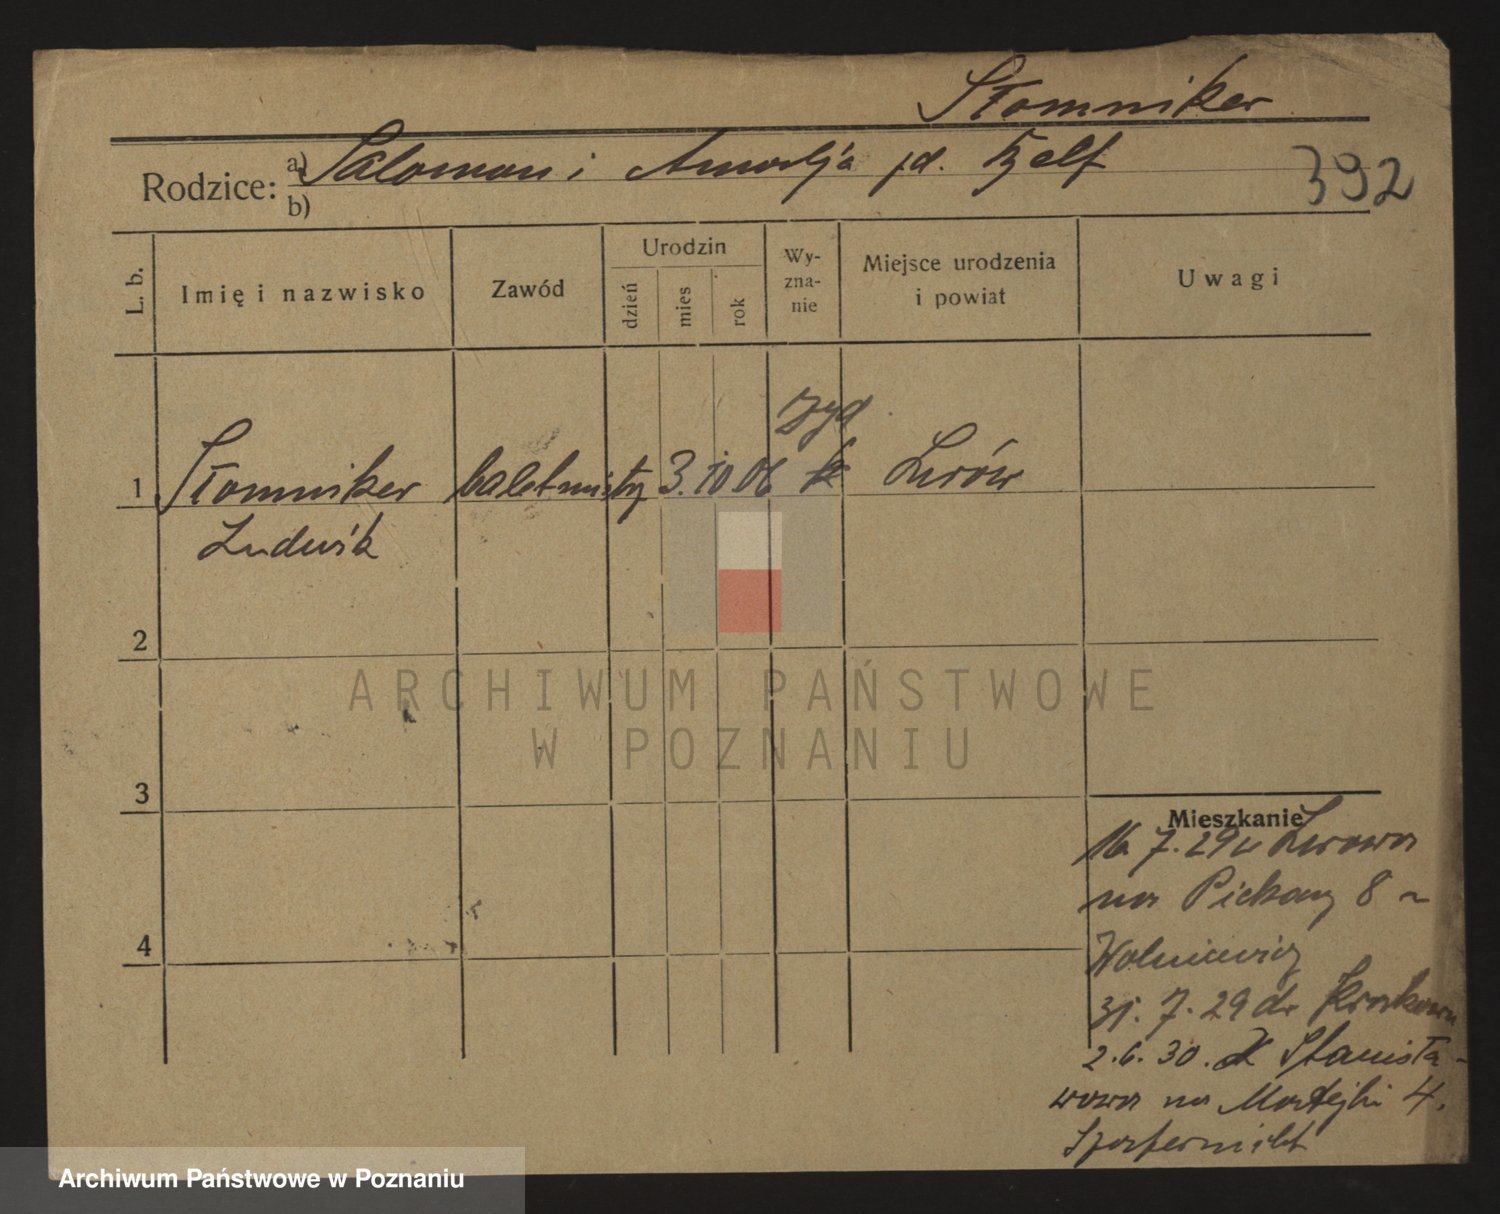 Słomniker
Rodzice: a) Salomon i Amalja
392
b)
L. b.
Imię i nazwisko
Zawód
Urodzin
dzień
mies
rok
Wy-
zna-
nie
Miejsce urodzenia
i powiat
Uwagi
żyd
1 Słomniker baletmistrz 3. 10 06 Lwów
Ludwik
2
3
4
ARCHIWUM PAŃSTWOWE
W POZNANIU
Mieszkanie
16. 7. 29 Lwowa
na Piekary 8
Wolniewicz
31. 7. 29 do Krakowa
2. 6. 30. Stanisła-
wowa na Matejki 4.
Archiwum Państwowe w Poznaniu